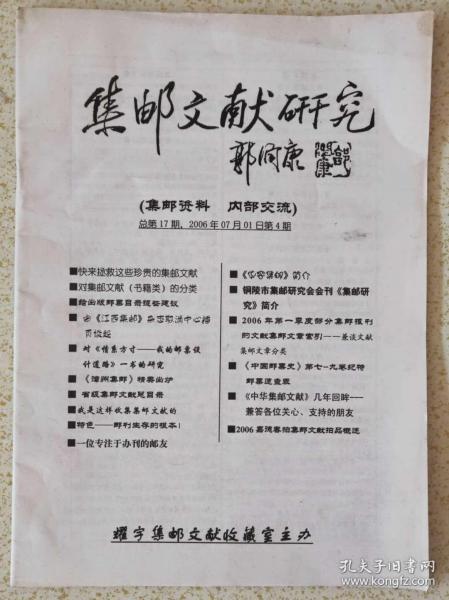 集邮文献研究
郭润康
(集邮资料 内部交流)
总第17期，2006年07月01日第4期
■快来拯救这些珍贵的集邮文献
■对集邮文献（书籍类）的分类
■给出版邮票目录提些建议
■由《江西集邮》杂志联谊中心插
页谈起
■对《情系方寸——我的邮票设
计道路》一书的研究
■《漳州集邮》精美出炉
■省级集邮文献总目录
■我是这样收集集邮文献的
■特色——邮刊生存的根本！
■一位专注于办刊的邮友
简介
■铜陵市集邮研究会会刊《集邮研
究》简介
■2006年第一季度部分集邮报刊
的文献集邮文章索引——兼谈文献
集邮文章分类
■《中国邮票史》第七-九卷纪特
邮票速查表
■《中华集邮文献》几年回眸——
兼答各位关心、支持的朋友
■2006嘉德春拍集邮文献拍品概述
耀宇集邮文献收藏室主办
孔夫子旧书网
www.kongfz.com